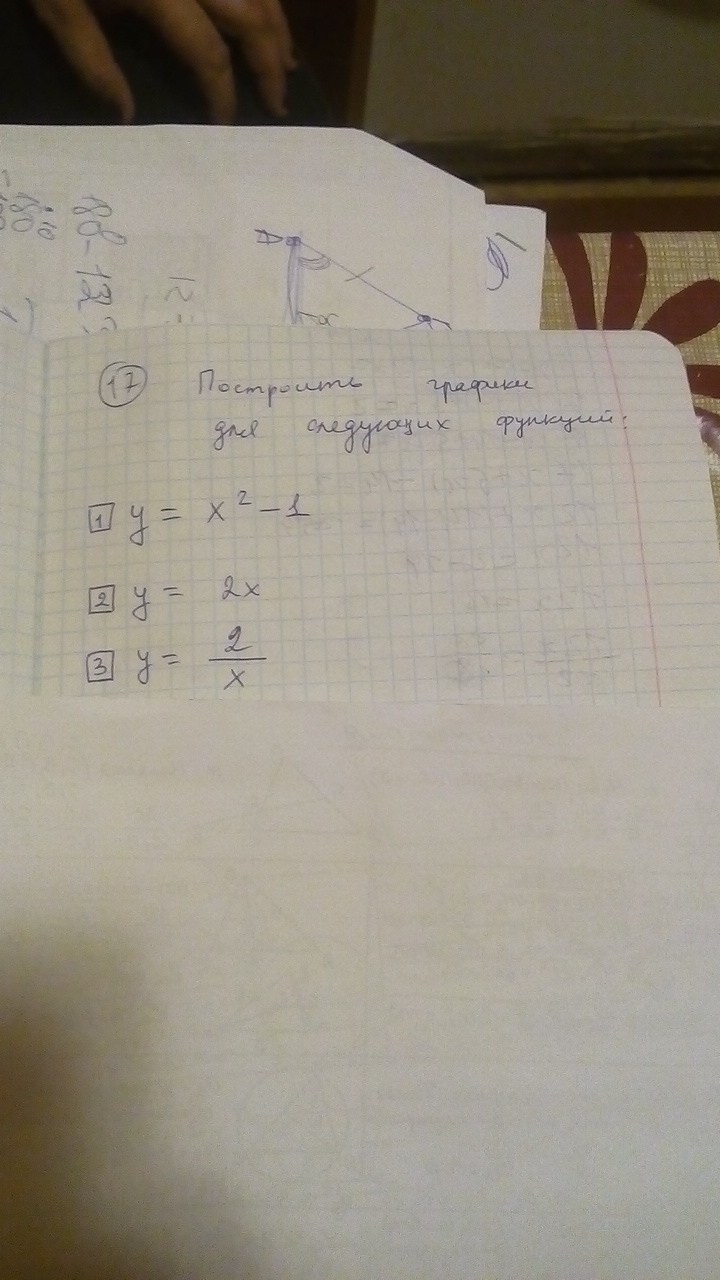 17 Построить графики
для следующих функций:
1 y = x² - 1
2 y = 2x
3 y = 2/x